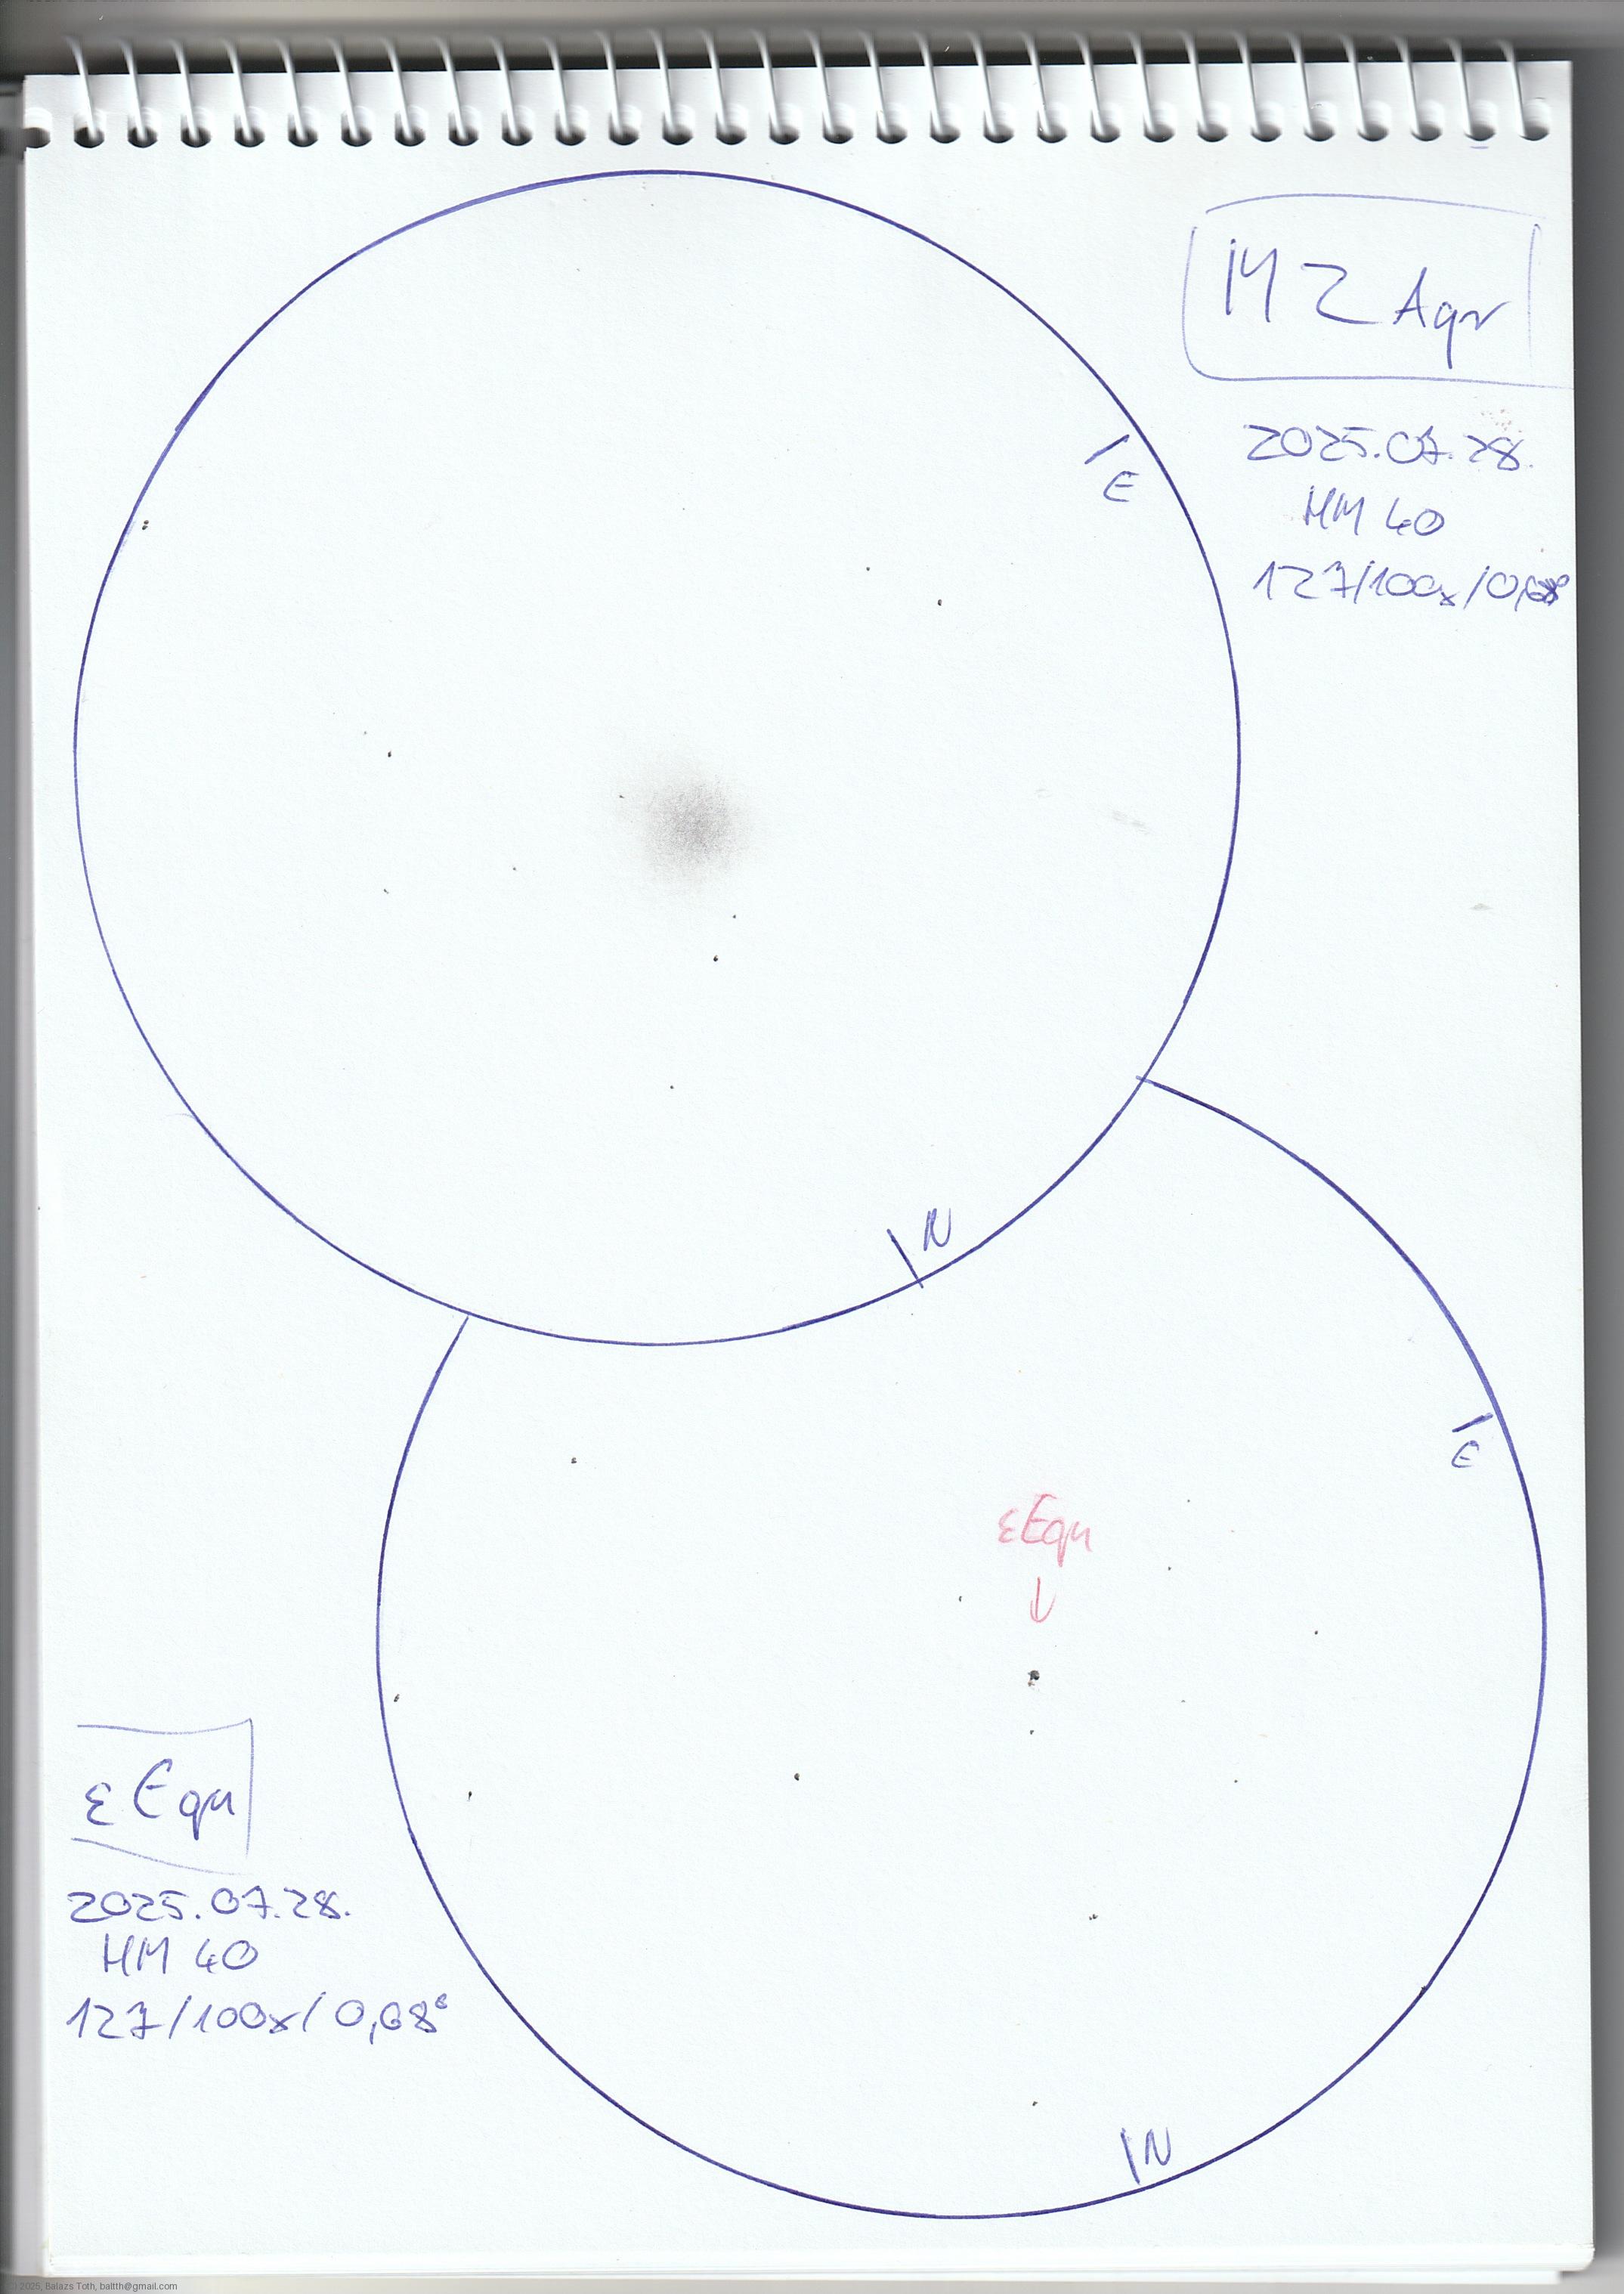 M 2 Aqr
2025.07.28.
HM 40
127/100x/0,68°
E
N
E
εEqu
↓
ε Equ
2025.07.28.
HM 40
127/100x/0,68°
N
© 2025, Balazs Toth, baltth@gmail.com